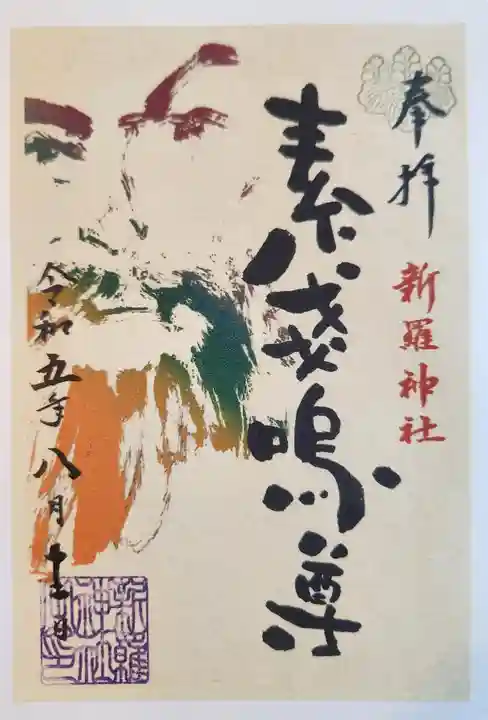 奉拝
新羅神社
素戔嗚尊
令和五年八月十三日
新羅神社